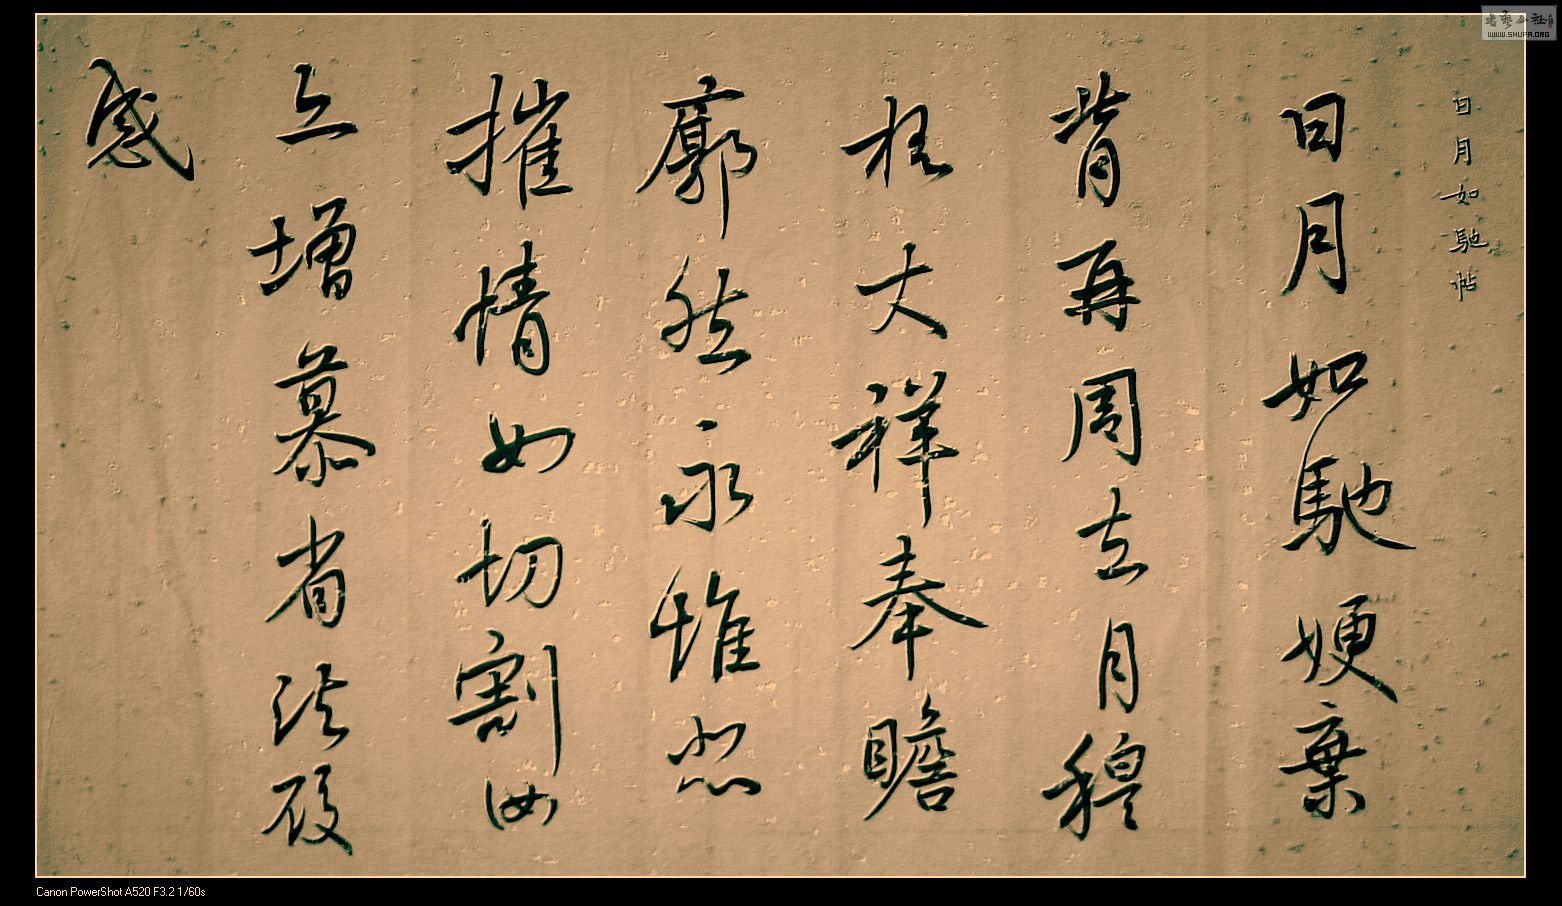 日月如馳帖
日月如馳嫂棄
背再周去月穆
松大祥奉瞻
廓然永惟悲
摧情如切割汝
亦增慕省疏酸
感
WWW.SHUFA.ORG
Canon PowerShot A520 F3.2 1/60s